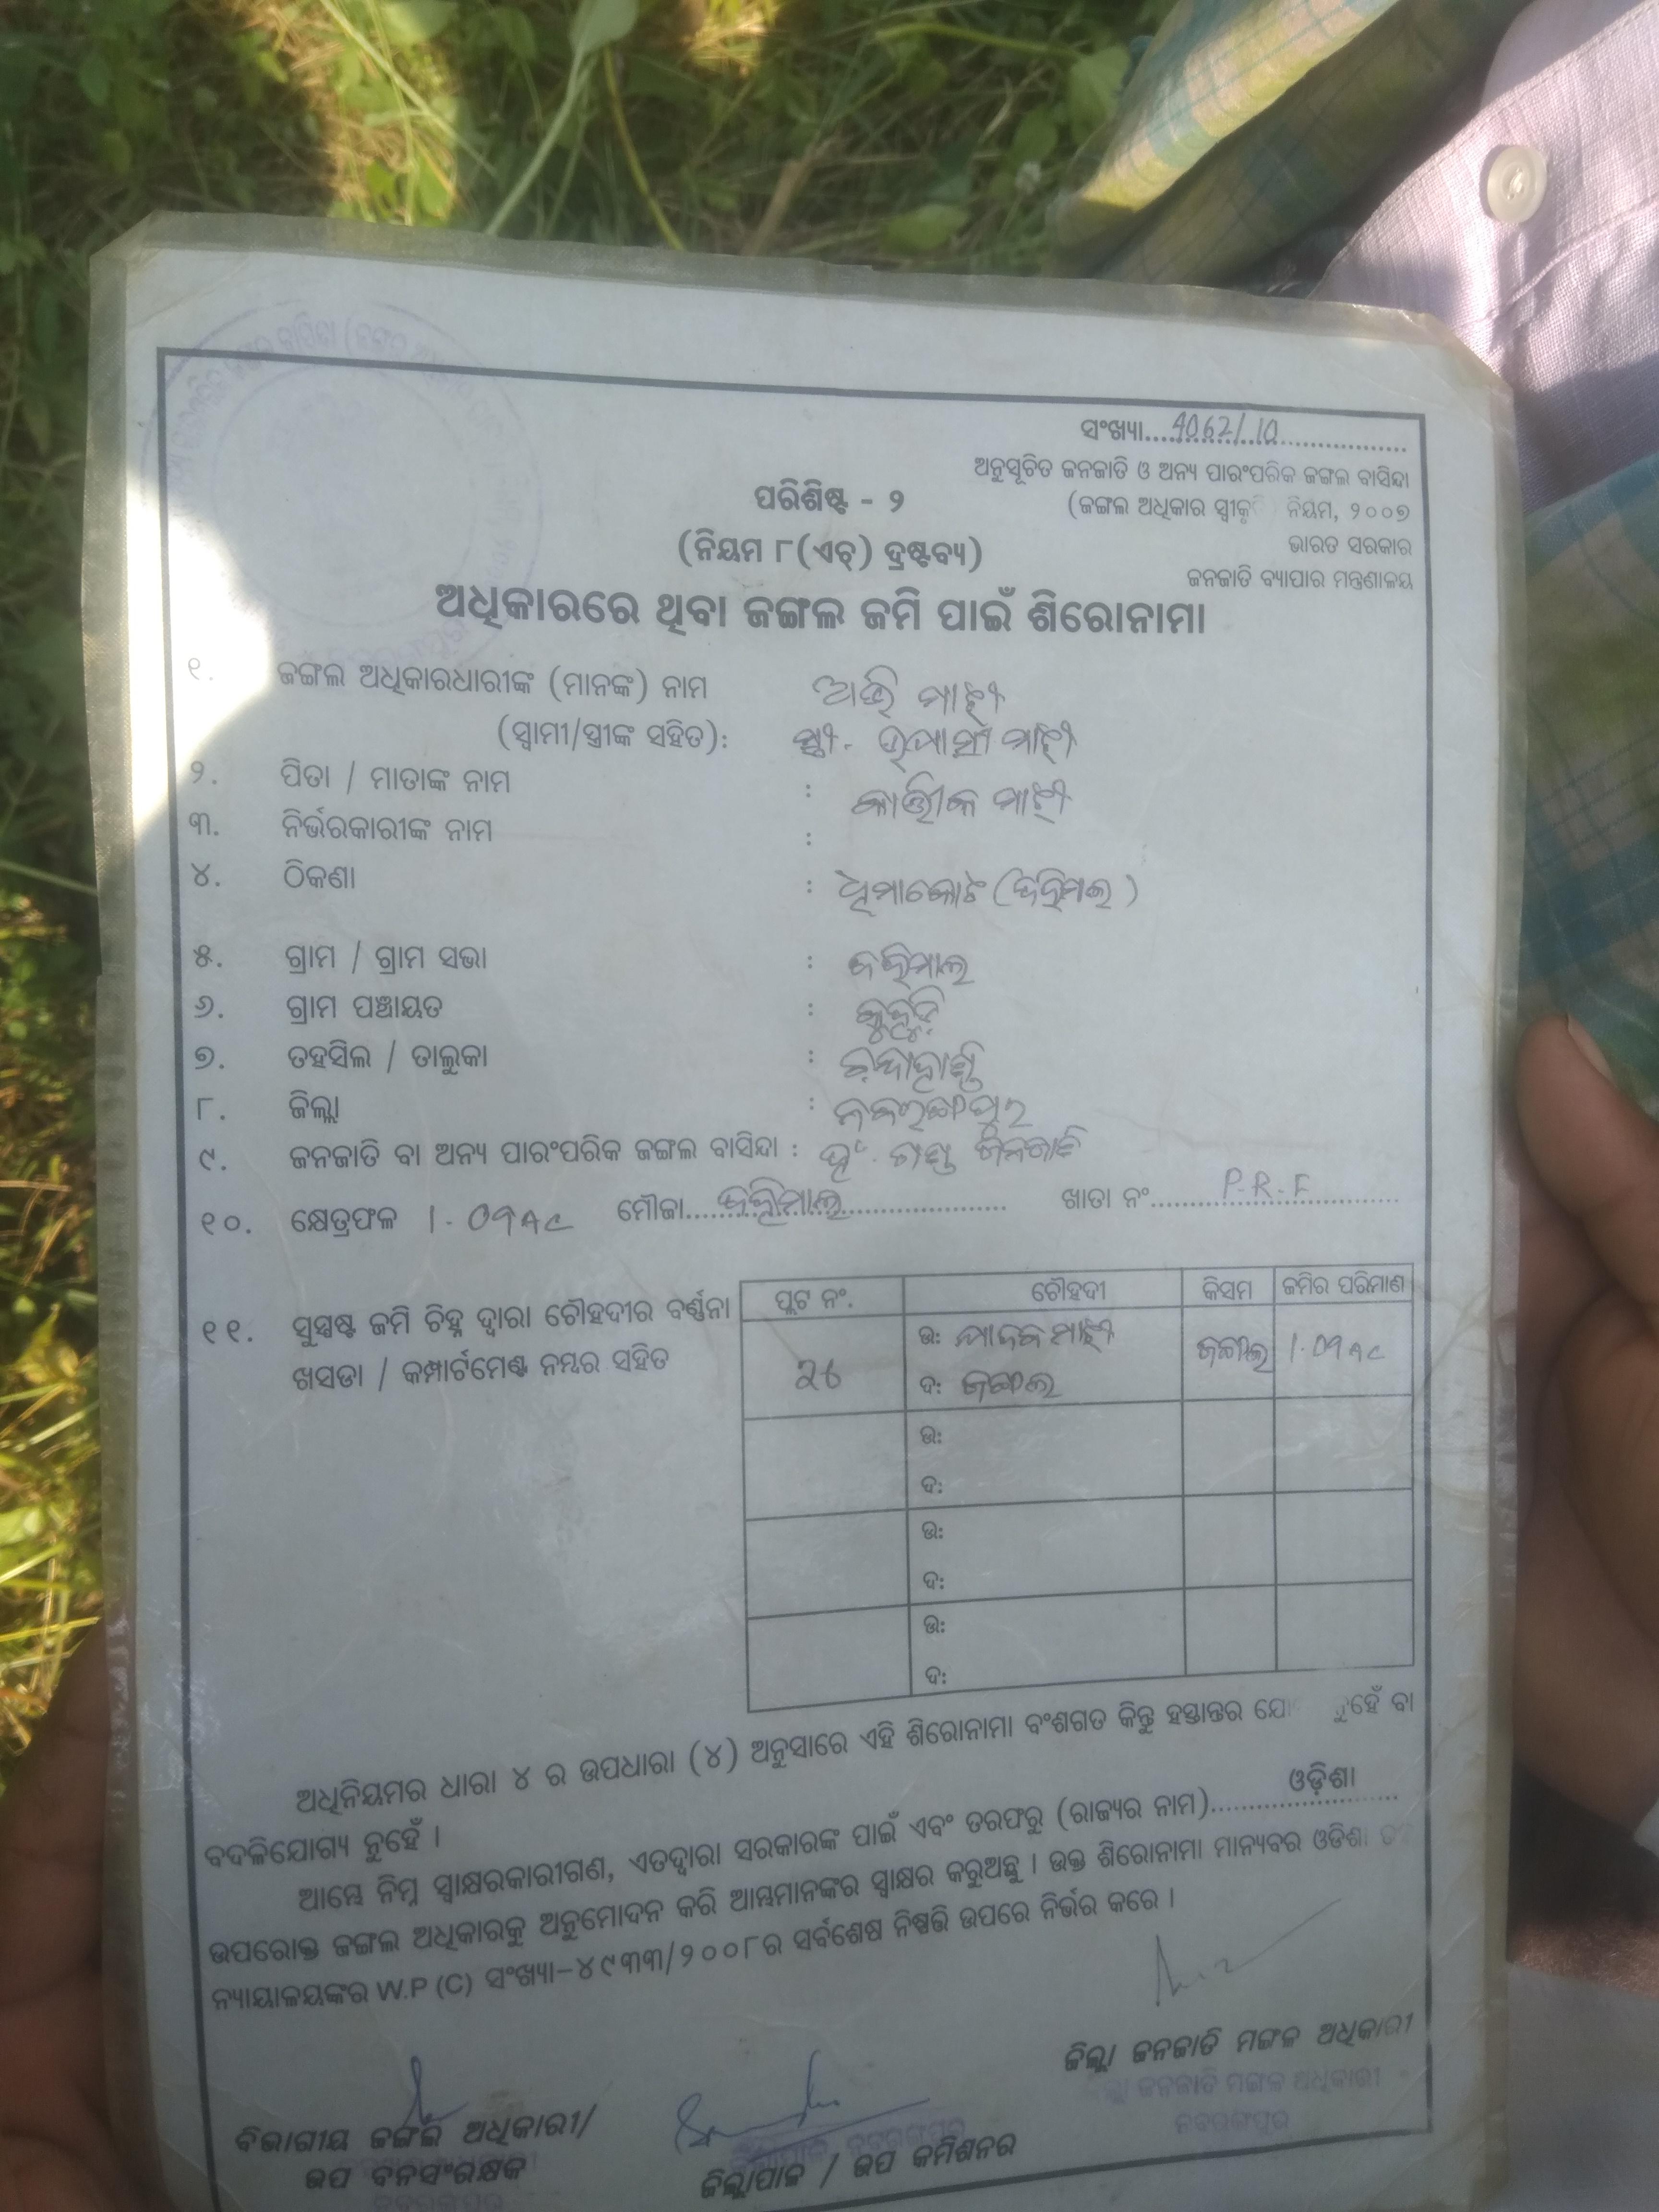 ସଂଖ୍ୟା....4062/10....
ଅନୁସୂଚିତ ଜନଜାତି ଓ ଅନ୍ୟ ପାରଂପରିକ ଜଙ୍ଗଲ ବାସିନ୍ଦା
ପରିଶିଷ୍ଟ - ୨
(ଜଙ୍ଗଲ ଅଧିକାର ନିୟମ, ୨୦୦୭
(ନିୟମ ୮(ଏଚ୍) ଦ୍ରଷ୍ଟବ୍ୟ)
ଭାରତ ସରକାର
ଜନଜାତି ବ୍ୟାପାର ମନ୍ତ୍ରଣାଳୟ
ଅଧିକାରରେ ଥିବା ଜଙ୍ଗଲ ଜମି ପାଇଁ ଶିରୋନାମା
୧. ଜଙ୍ଗଲ ଅଧିକାରଧାରୀଙ୍କ (ମାନଙ୍କ) ନାମ ମାଝୀ
(ସ୍ୱାମୀ/ସ୍ତ୍ରୀଙ୍କ ସହିତ): ସ୍ତ୍ରୀ- ମାଝୀ
୨. ପିତା / ମାତାଙ୍କ ନାମ : କାର୍ତ୍ତୀକ ମାଝୀ
୩. ନିର୍ଭରକାରୀଙ୍କ ନାମ :
୪. ଠିକଣା :
୫. ଗ୍ରାମ / ଗ୍ରାମ ସଭା : ଜରିମାଲ
୬. ଗ୍ରାମ ପଞ୍ଚାୟତ :
୭. ତହସିଲ / ତାଲୁକା : ଚନ୍ଦାହାଣ୍ଡି
୮. ଜିଲ୍ଲା : ନବରଙ୍ଗପୁର
୯. ଜନଜାତି ବା ଅନ୍ୟ ପାରଂପରିକ ଜଙ୍ଗଲ ବାସିନ୍ଦା : ହଁ. ଜନଜାତି
୧୦. କ୍ଷେତ୍ରଫଳ ମୌଜା....ଜରିମାଲ.... ଖାତା ନଂ....P.R.F....
୧୧. ସୁସ୍ପଷ୍ଟ ଜମି ଚିହ୍ନ ଦ୍ୱାରା ଚୌହଦୀର ବର୍ଣ୍ଣନା
ଖସଡା / କମ୍ପାର୍ଟମେଣ୍ଟ ନମ୍ବର ସହିତ
ପ୍ଲଟ ନଂ. ଚୌହଦୀ କିସମ ଜମିର ପରିମାଣ
ଉ: ମାଝୀ
ଜଙ୍ଗଲ
ଦ: ଜଙ୍ଗଲ
ଉ:
ଦ:
ଉ:
ଦ:
ଉ:
ଦ:
ଅଧିନିୟମର ଧାରା ୪ ର ଉପଧାରା (୪) ଅନୁସାରେ ଏହି ଶିରୋନାମା ବଂଶଗତ କିନ୍ତୁ ହସ୍ତାନ୍ତର ବା
ବଦଳିଯୋଗ୍ୟ ନୁହେଁ ।
ଆମ୍ଭେ ନିମ୍ନ ସ୍ୱାକ୍ଷରକାରୀଗଣ, ଏତଦ୍ୱାରା ସରକାରଙ୍କ ପାଇଁ ଏବଂ ତରଫରୁ (ରାଜ୍ୟର ନାମ)....ଓଡ଼ିଶା....
ଉପରୋକ୍ତ ଜଙ୍ଗଲ ଅଧିକାରକୁ ଅନୁମୋଦନ କରି ଆମ୍ଭମାନଙ୍କର ସ୍ୱାକ୍ଷର କରୁଅଛୁ । ଉକ୍ତ ଶିରୋନାମା ମାନ୍ୟବର ଓଡିଶା
ନ୍ୟାୟାଳୟଙ୍କର W.P (C) ସଂଖ୍ୟା-୪୯୩୩/୨୦୦୮ର ସର୍ବଶେଷ ନିଷ୍ପତ୍ତି ଉପରେ ନିର୍ଭର କରେ ।
ଜିଲ୍ଲା ଜନଜାତି ମଙ୍ଗଳ ଅଧିକାରୀ
ଜନଜାତି ମଙ୍ଗଳ ଅଧିକାରୀ
ନବରଙ୍ଗପୁର
ବିଭାଗୀୟ ଜଙ୍ଗଲ ଅଧିକାରୀ/
ଉପ ବନସଂରକ୍ଷକ
ଜିଲ୍ଲାପାଳ / ଉପ କମିଶନର